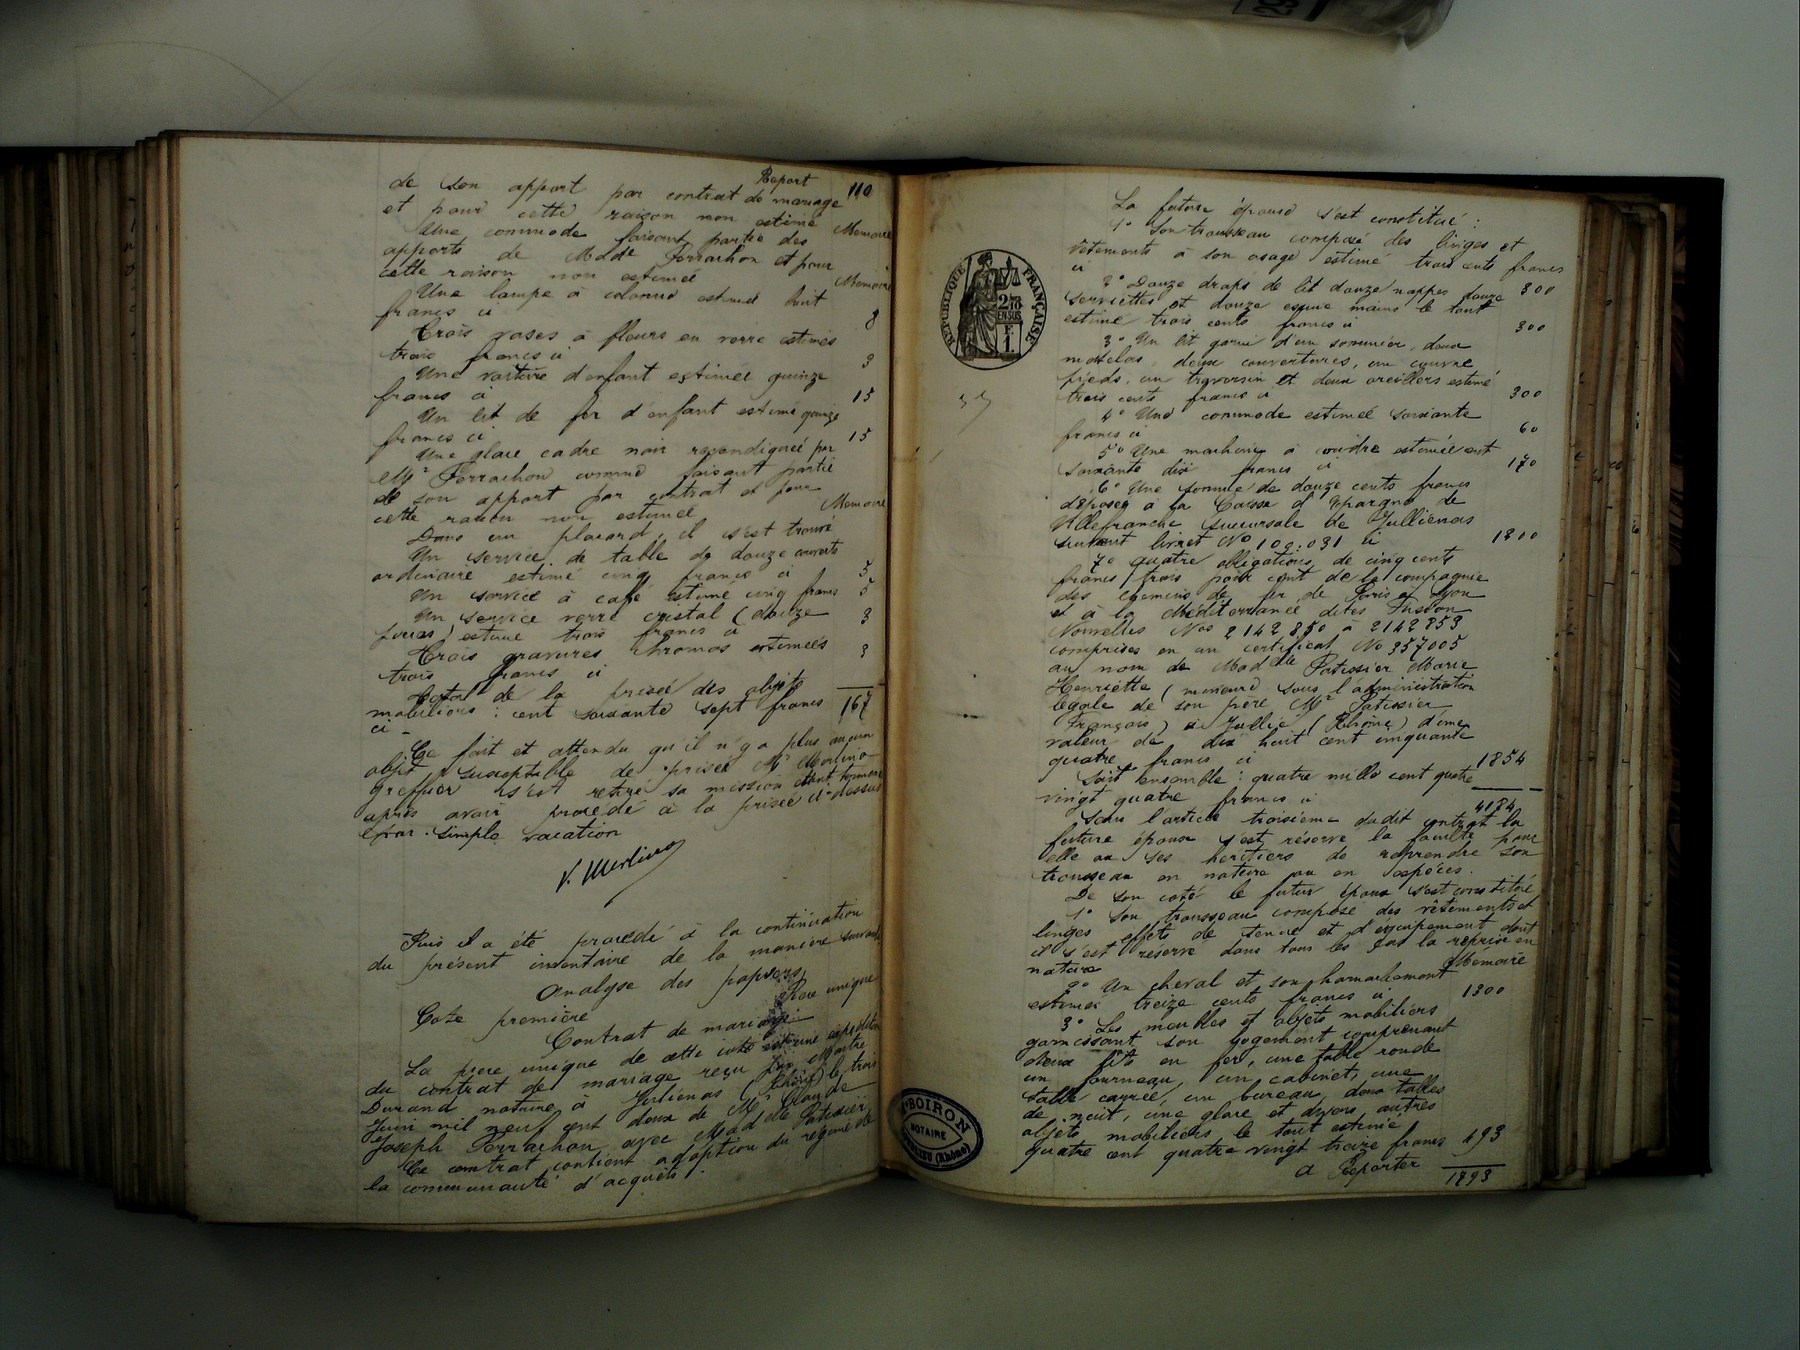 Report 110
de son apport par contrat de mariage
et pour cette raison non estimé Memoire
Une commode faisant partie des
apports de Mde Perrachon et pour
cette raison non estimée Memoire
Une lampe à colonne estimée huit
francs ci 8
Trois vases à fleurs en verre estimés
trois francs ci 3
Une voiture d'enfant estimée quinze
francs ci 15
Un lit de fer d'enfant estimé quinze
francs ci 15
Une glace cadre noir revendiquée par
Mr Perrachon comme faisant partie
de son apport par contrat et pour
cette raison non estimée Memoire
Dans un placard, il s'est trouvé
Un service de table de douze couverts
ordinaire estimé cinq francs ci 5
Un service à café estimé cinq francs 5
Un service verre cristal (douze
pièces) estimé trois francs ci 3
Trois gravures chromos estimées
trois francs ci 3
Total de la prisée des objets
mobiliers : cent soixante sept francs 167
ci -
Ce fait et attendu qu'il n'y a plus aucun
objet susceptible de prisée Mr Merlino
greffier s'est retiré sa mission étant terminée
après avoir procédé à la prisée ci-dessus
par simple vacation
V. Merlino
Puis il a été procédé à la continuation
du présent inventaire de la manière suivante
Analyse des papiers
Cote première Pièce unique
Contrat de mariage
La pièce unique de cette cote est une expédition
du contrat de mariage reçu par Maître
Durand notaire à Juliénas (Rhône) le trois
Juin mil neuf cent deux de Mr Claude
Joseph Perrachon avec Madelle Patissier
Ce contrat contient adoption du régime de
la communauté d'acquêts.
La future épouse s'est constitué :
1° Son trousseau composé des linges et
vêtements à son usage estimé trois cents francs
ci 300
2° Douze draps de lit douze nappes douze
serviettes et douze essuie mains le tout
estimé trois cents francs ci 300
3° Un lit garni d'un sommier, deux
matelas, deux couvertures, un couvre
pieds, un traversin et deux oreillers estimé
trois cents francs ci 300
4° Une commode estimée soixante
francs ci 60
5° Une machine à coudre estimée cent
soixante dix francs ci 170
6° Une somme de douze cents francs
déposée à la Caisse d'Epargne de
Villefranche succursale de Jullienas
suivant livret No 100.031 ci 1200
7° quatre obligations de cinq cents
francs trois pour cent de la compagnie
des chemins de fer de Paris à Lyon
et à la Méditerranée dites Fusion
Nouvelles Nos 2142850 à 2142853
comprises en un certificat No 357005
au nom de Madelle Patissier Marie
Henriette (mineure sous l'administration
légale de son père Mr Patissier
François) à Jullié (Rhône) d'une
valeur de dix huit cent cinquante
quatre francs ci 1854
Soit ensemble : quatre mille cent quatre
vingt quatre francs ci 4184
Sous l'article troisième dudit contrat la
future épouse s'est réservé la faculté pour
elle ou ses héritiers de reprendre son
trousseau en nature ou en espèces.
De son coté le futur époux s'est constitué
1° Son trousseau composé des vêtements et
linges effets de tenue et d'équipement dont
il s'est réservé dans tous les cas la reprise en
nature Memoire
2° Un cheval et son harnachement
estimés treize cents francs ci 1300
3° Les meubles et objets mobiliers
garnissant son logement comprenant
deux lits en fer, une table ronde
un fourneau, un cabinet, une
table carrée, un bureau, deux tables
de nuit, une glace et divers autres
objets mobiliers le tout estimé
quatre cent quatre vingt treize francs 493
A Reporter 1793
RÉPUBLIQUE FRANÇAISE
EN SUS
F.
1.
BOIRON
NOTAIRE
(Rhône)